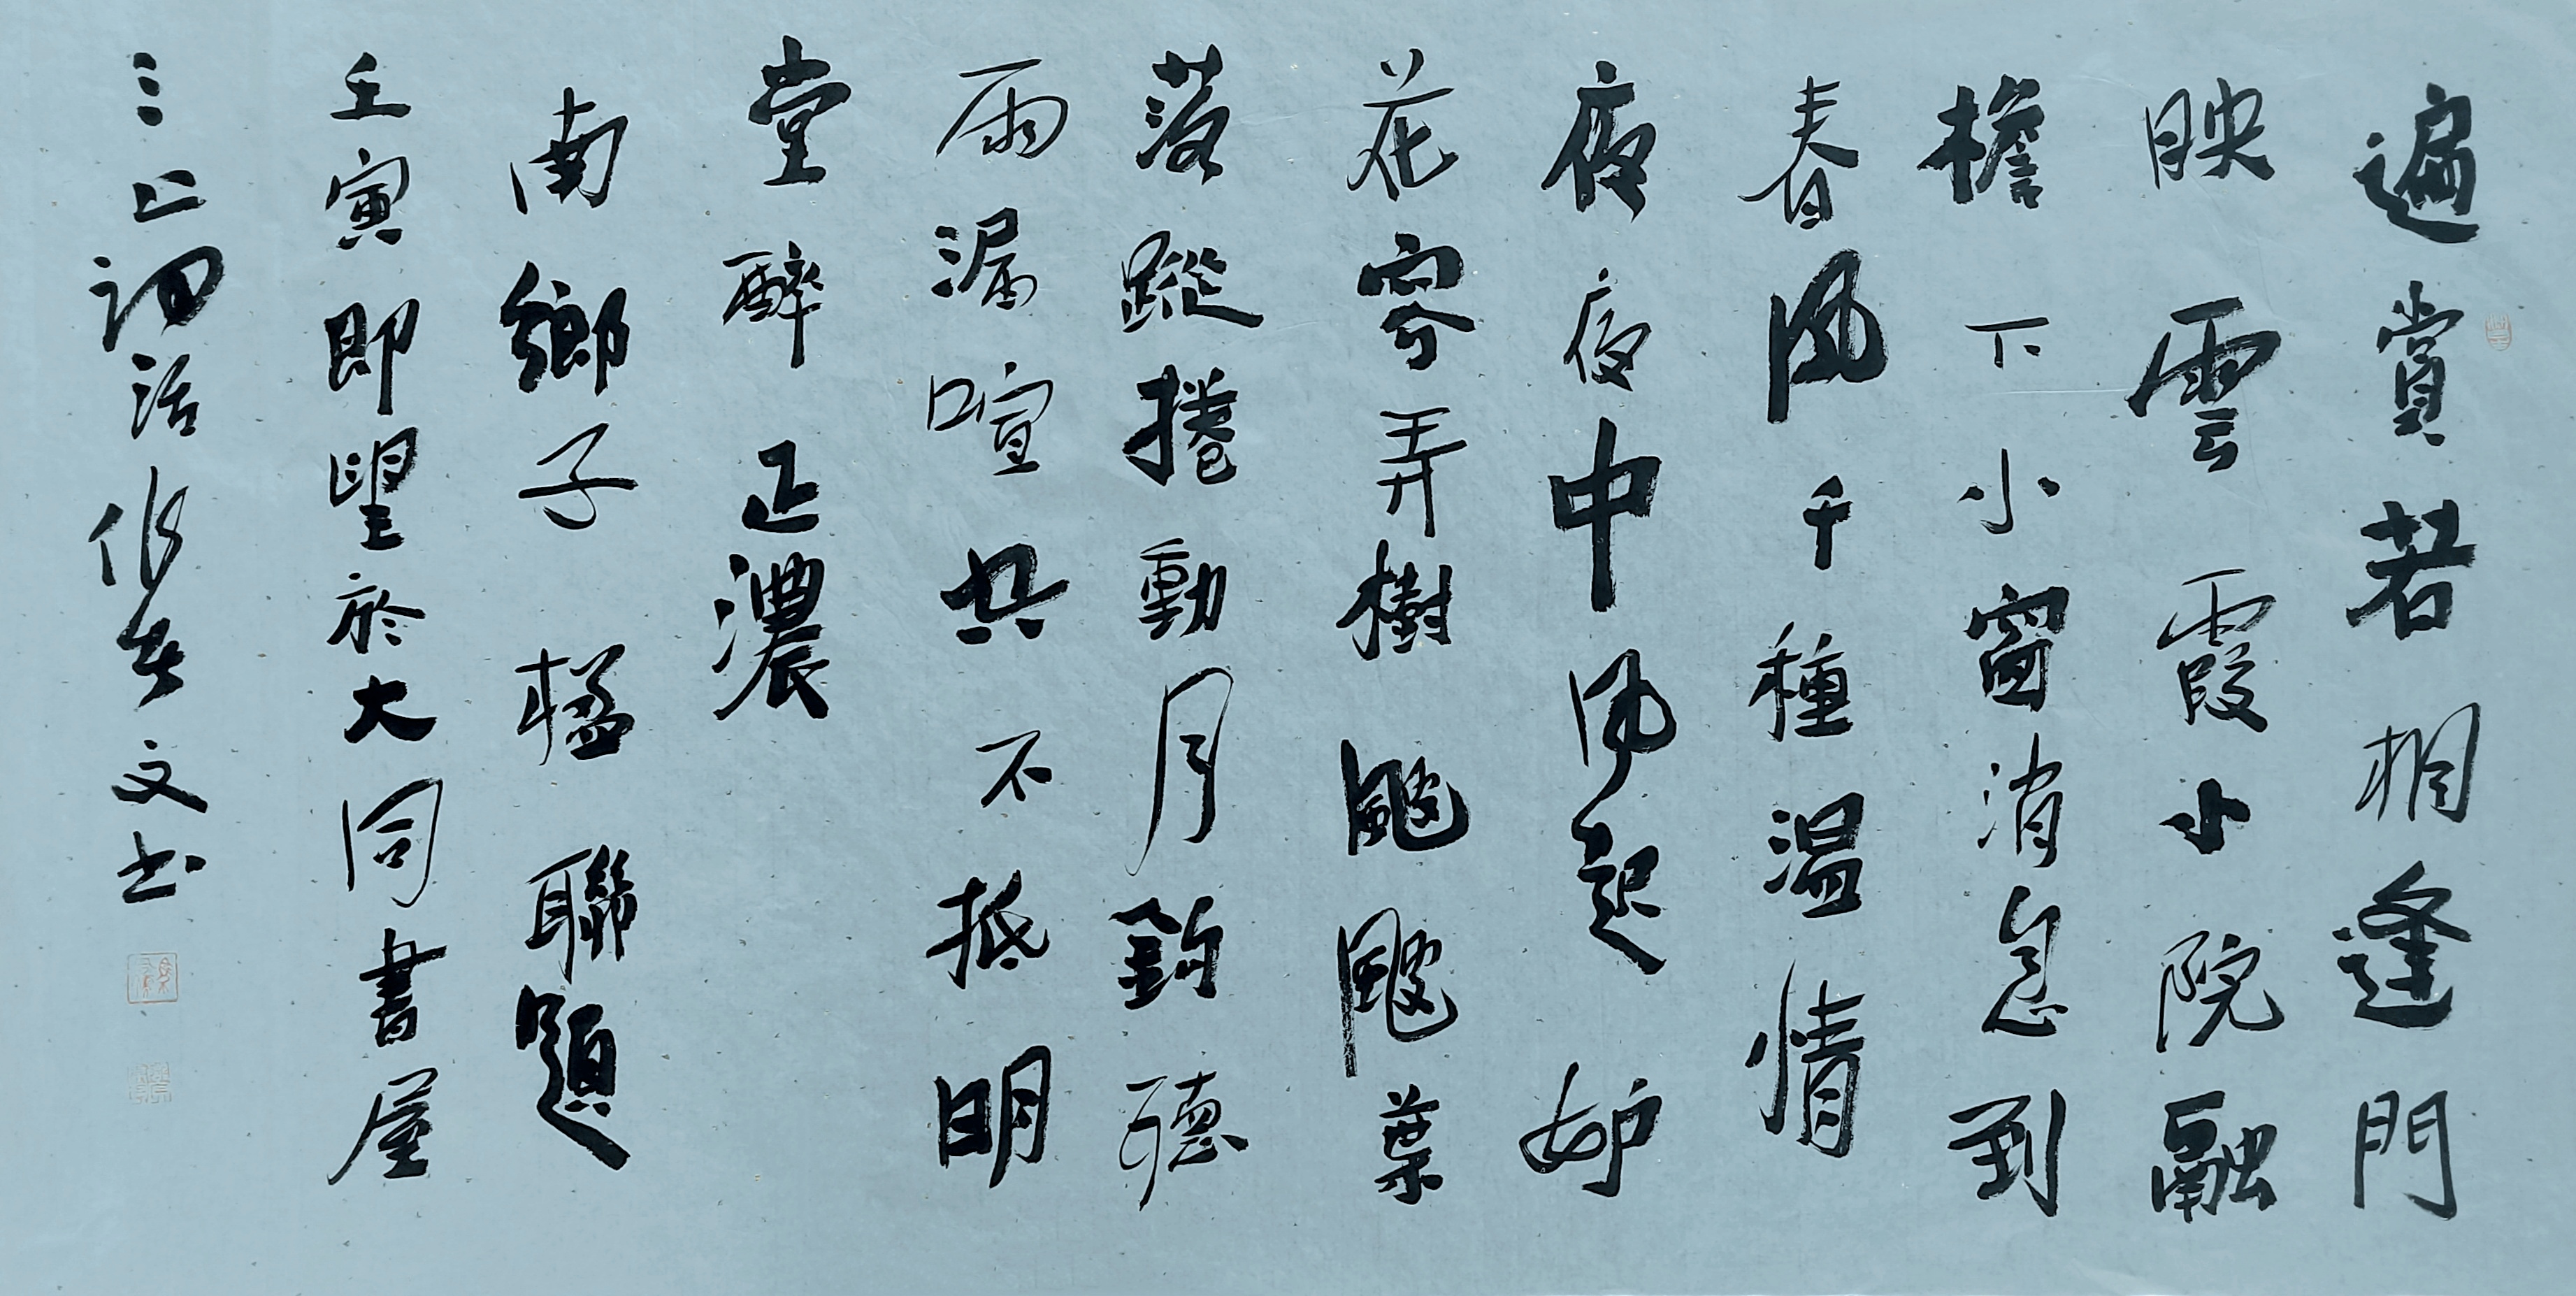 遍賞若相逢門
映雲霞小院融
檐下小窗消息到
春風千種温情
夜夜中風起妒
花容弄樹颭颭葉
落蹤捲動月鈎聽
雨漏喧共不抵明
堂醉正濃
南鄉子 楹聯題
壬寅即望於大同書屋
三上詞話 文書